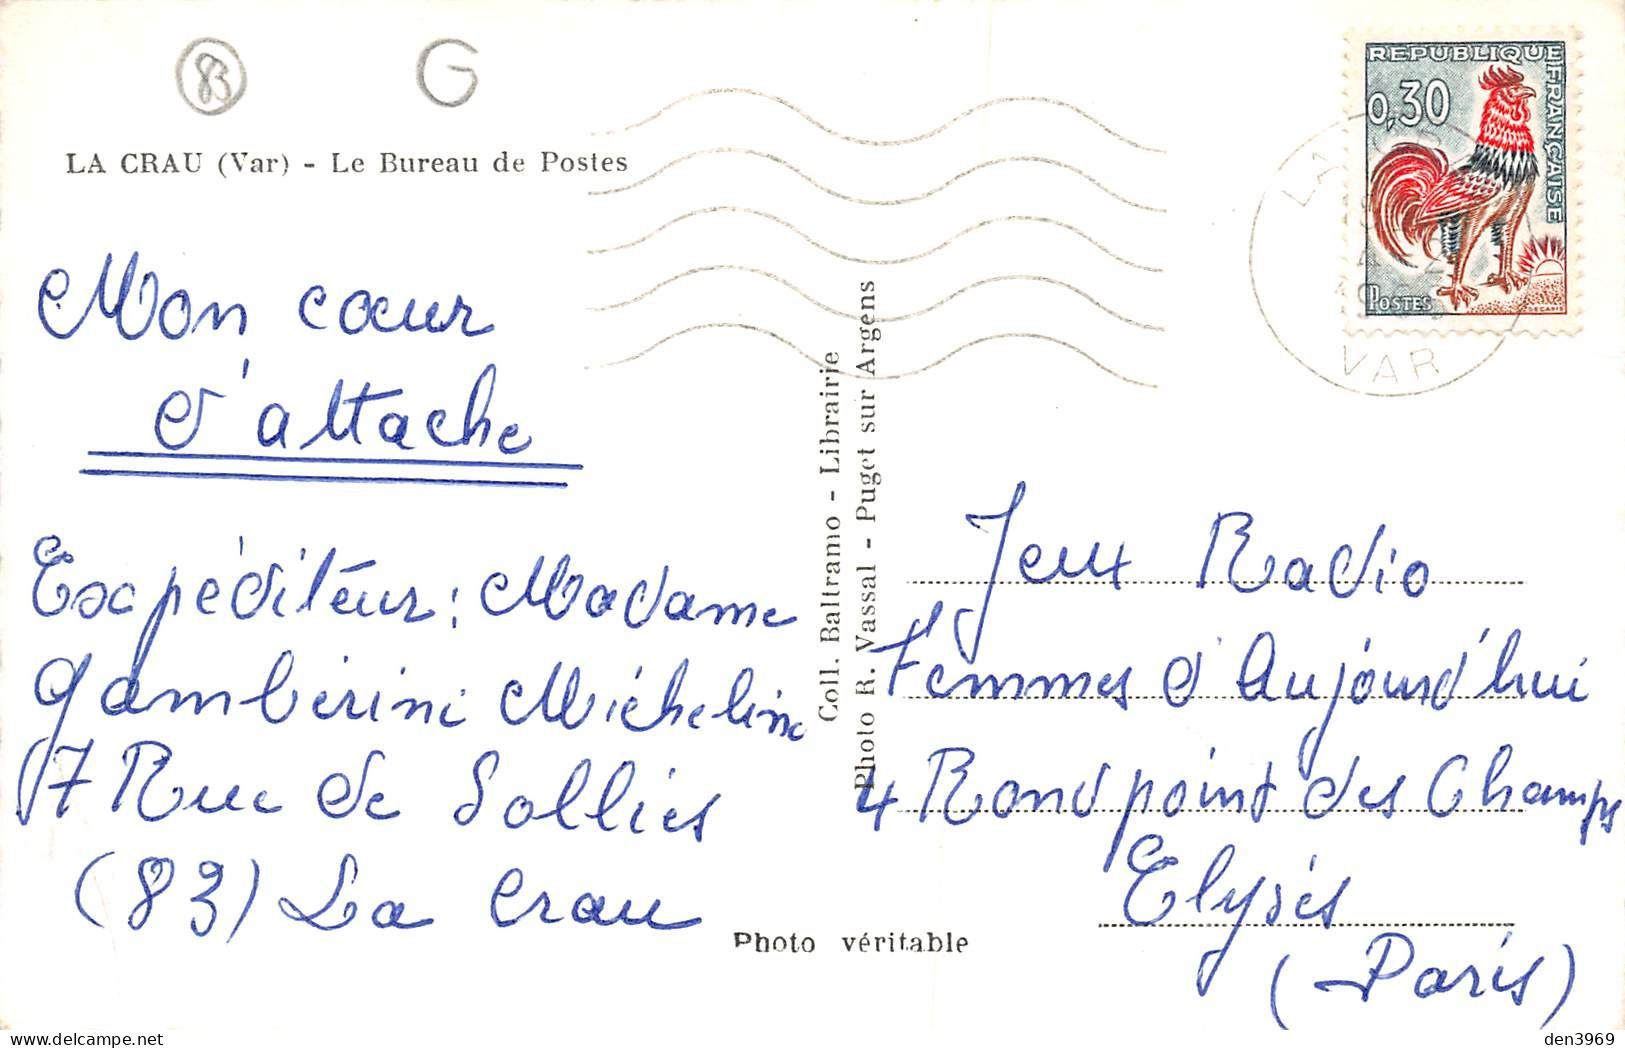 83
G
LA CRAU (Var) - Le Bureau de Postes
REPUBLIQUE FRANÇAISE
0,30
POSTES
DECARIS
LA
VAR
Mon cœur
s'attache
Expéditeur : Madame
Gambérini Micheline
7 Rue de Solliès
(83) La Crau
Coll. Baltramo - Librairie
Photo R. Vassal - Puget sur Argens
Jeux Radio
Femmes d'Aujourd'hui
4 Rond point des Champs
Elysés
(Paris)
Photo véritable
den3969